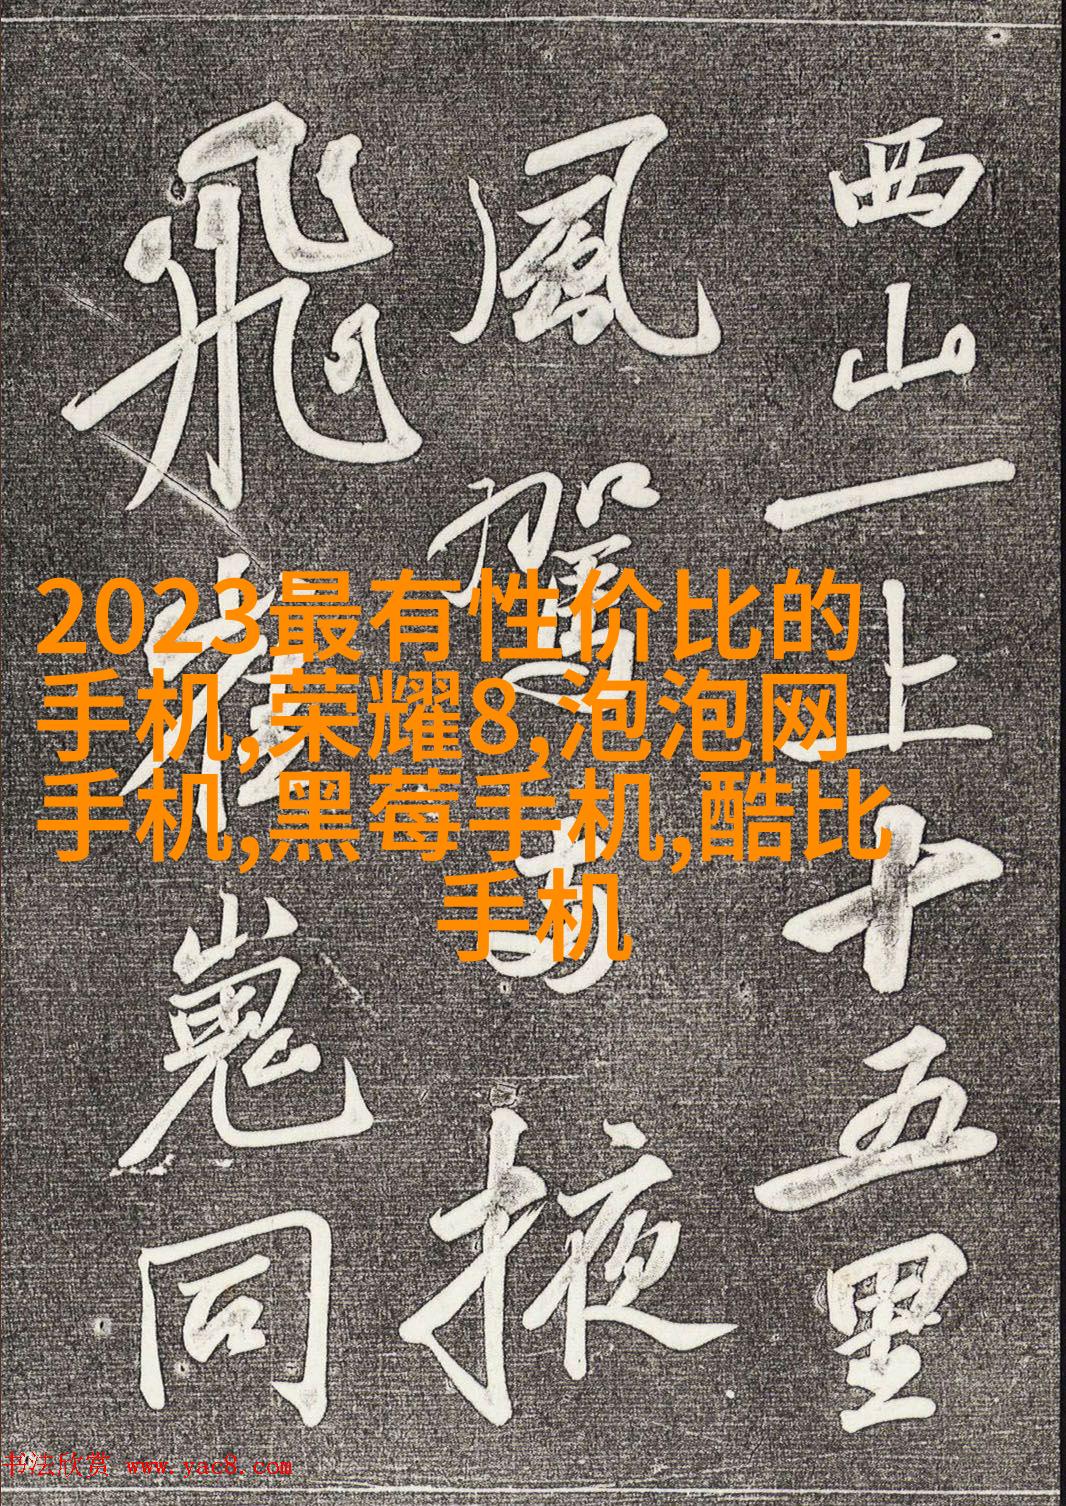 西山一上十五里
風駕掖
飛崔嵬同
2023最有性价比的
手机,荣耀8,泡泡网
手机,黑莓手机,酷比
手机
书法欣赏 www.yac8.com